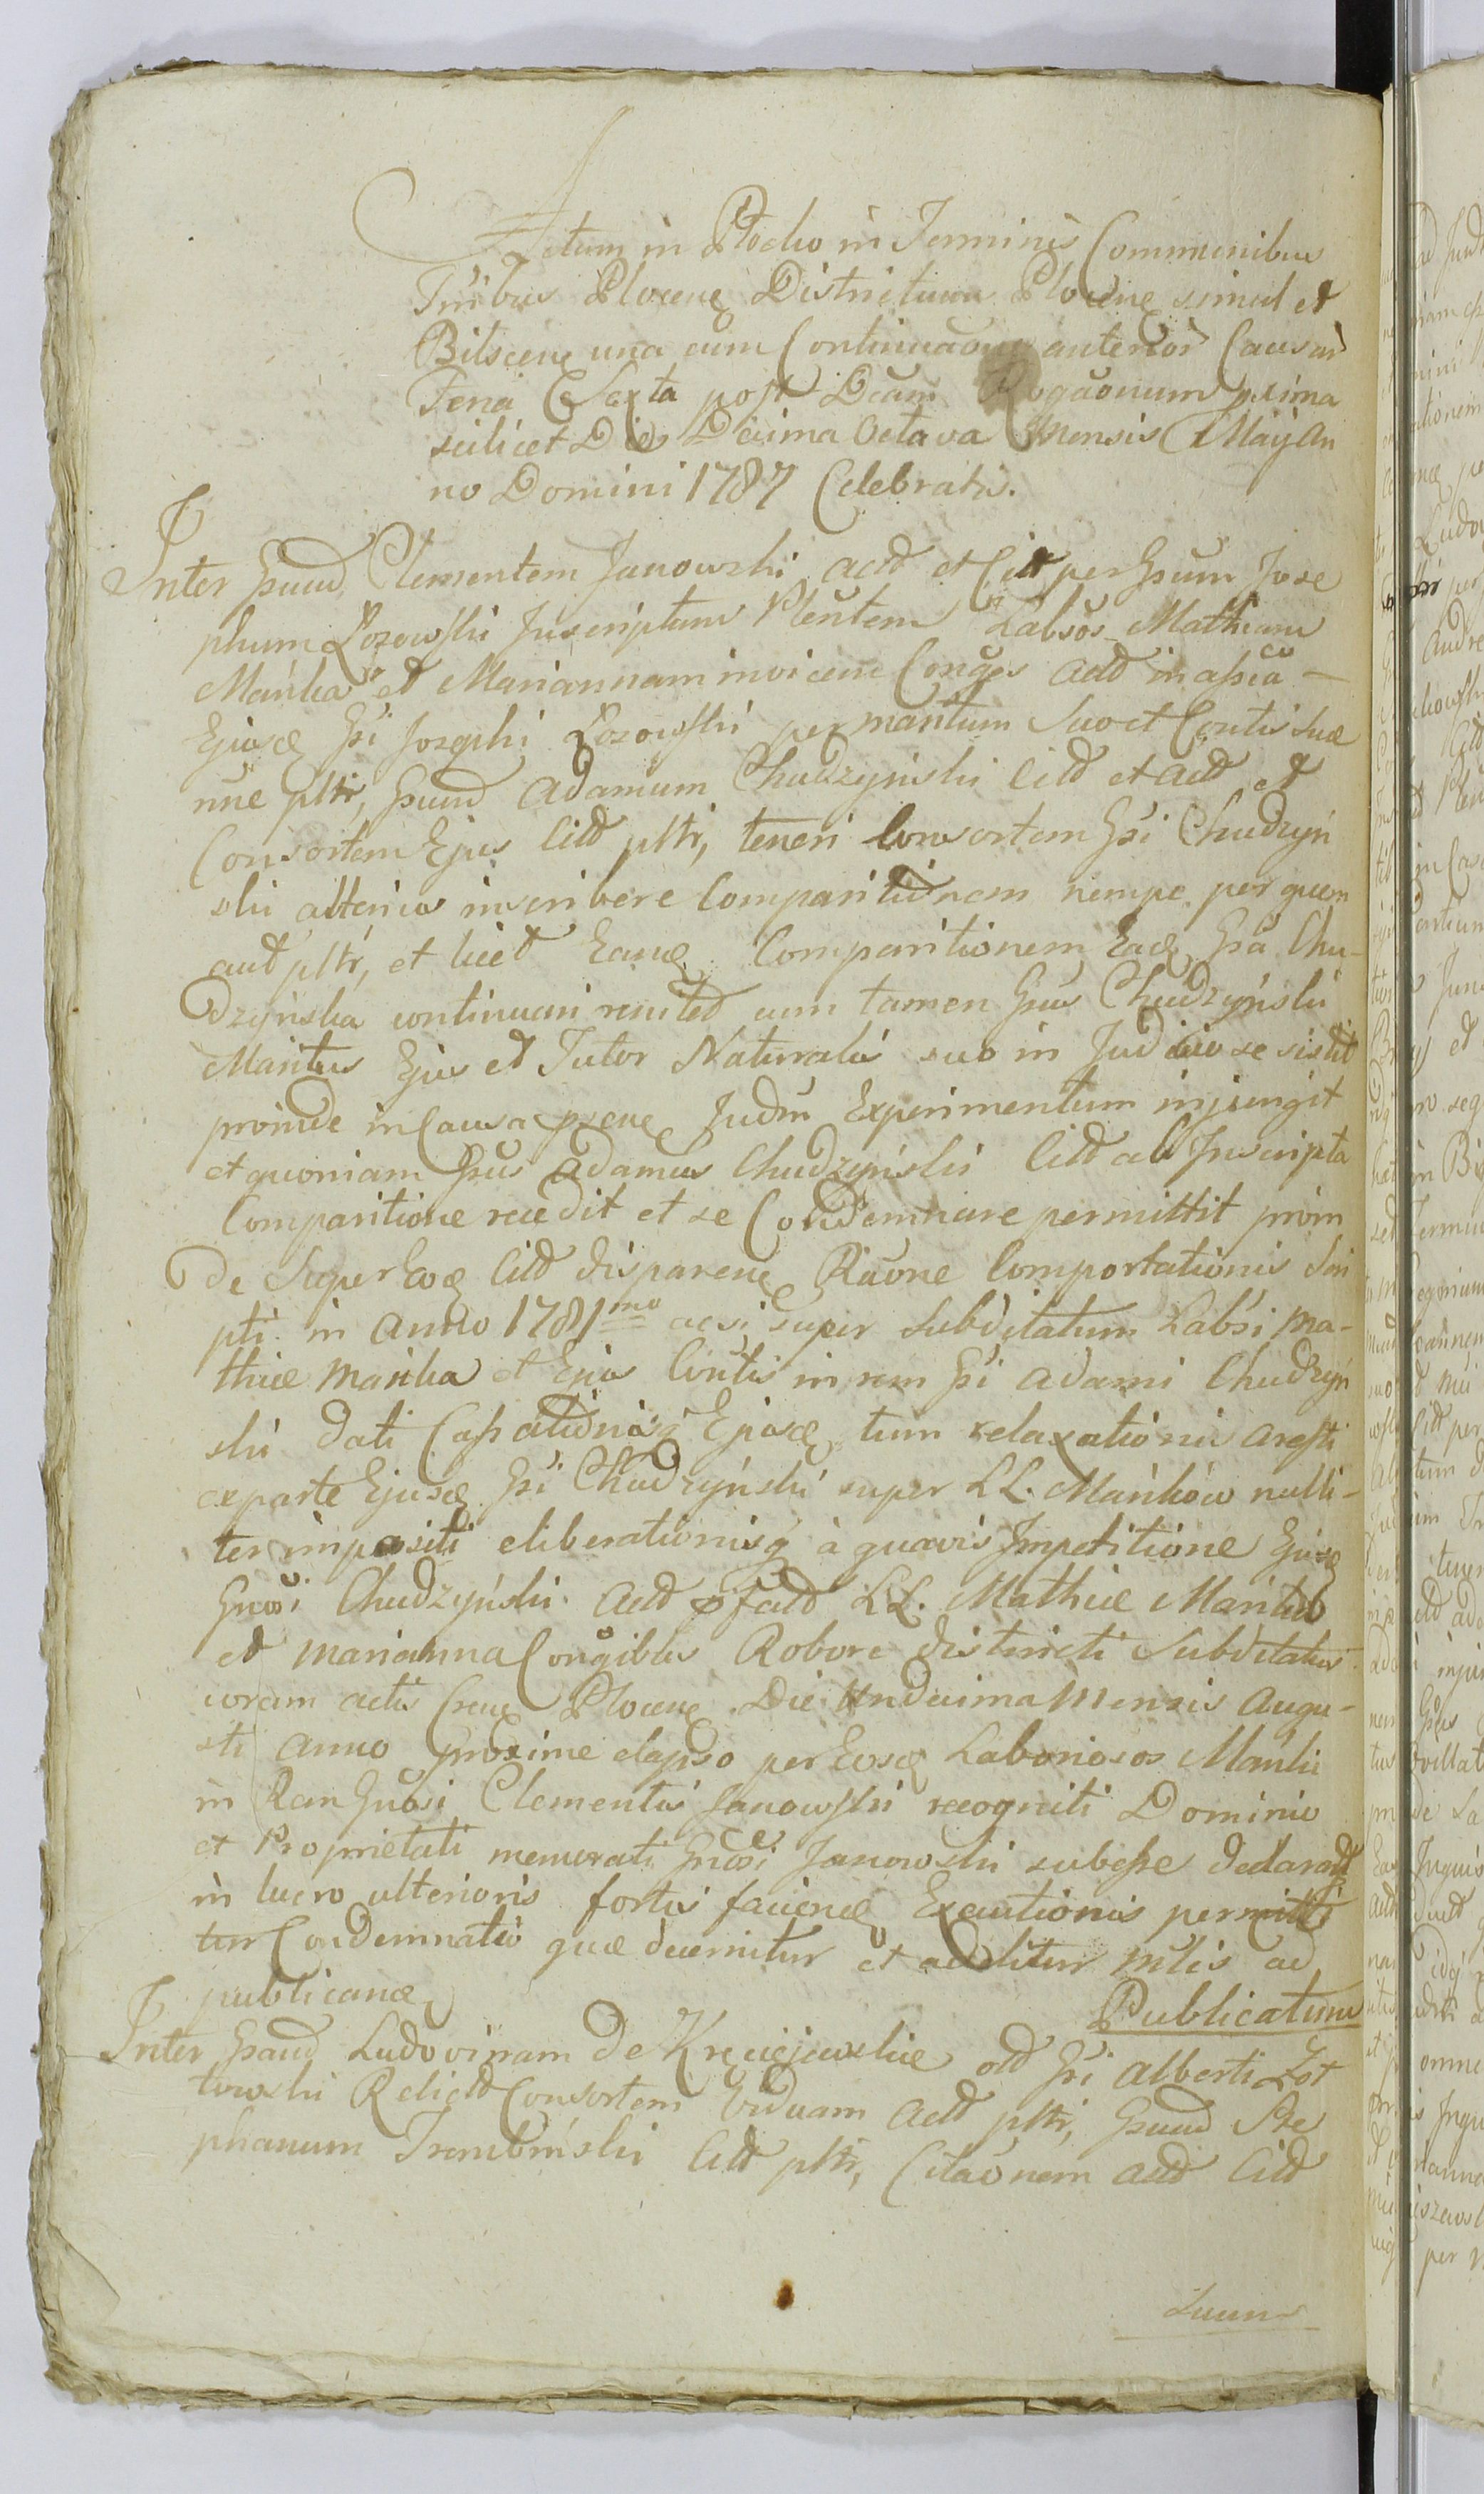 Actum in Płocko in Terminis Communibus
Tribus Plocens Districtuum Plocens simul et
Bilscens una cum Continuaõne anterior Causar
Feria Sexta post Dcam Rogãonum pxima
scilicet Die Decima Octava Mensis Maij An
no Domini 1787 Celebratis.
Inter Gsum Clementem Janowski actt et Citt per Gsum Jose
phum Łozowski Inscriptum Plentem Labsos Mathiam
Mańka et Mariannam invicem Conges actt in assia
Ejusd Gsi Josephi Łozowski per maritum Suo et Contis Suæ
nñe pltr, Gsum Adamum Chudzyński Citt et actt et
Consortem Ejus Citt pltr, teneri Consortem Gsi Chudzyń
ski alterius inscribere Comparitionem nempe per quem
aut pltr, et licet Eand Comparitionem Ead Gsa Chu-
dzyńska continuari renited cum tamen Gsus Chudzyński
Maritus Ejus et Tutor Naturalis suo in Judicio se sistit
proinde in Causa psene Judm Experimentum injungit
et quoniam Gsus Adamus Chudzyński Citt ab Inscripta
Comparitione recedit et se Condemnare permittit proin
de Super Eod Citt disparene Raõne Comportationis Scri
pti in Anno 1781mo acsi super Subditatum Labsi Ma-
thiæ Mańka et Ejus Contis in rem Gsi Adami Chudzyń
ski dati Cassationisq Ejusd tum relaxationis aresti
ex parte Ejusd Gsi Chudzyński super LL. Mańków nulli-
ter impositi eliberationisq à quavis Impetitione Ejusd
Gnosi Chudzyński Actt pfatt LL. Mathiæ Mańka
et Marianna Conqibus Robore districti Subditatus
coram actis Crens Plocens Die Undecima Mensis Augu-
sti Anno proxime elapso per Eosd Laboriosos Mańki
in Rem Gnosi Clementis Janowski recogniti Dominio
et Proprietati memorati Gnosi Janowski subesse declarat
in lucro ulterioris fortis faciend Executionis permitti
tur Condemnatio quæ decernitur et additur mlis ad
publicand
Publicatum
Inter Gsam Ludovicam de Kręciejewskie olt Gsi Alberti Żół
towski Relictt Consortem Viduam Actt pltr, Gsum Ste
phanum Trembiński Citt pltr, Citaõnem Actt Citt
Suum